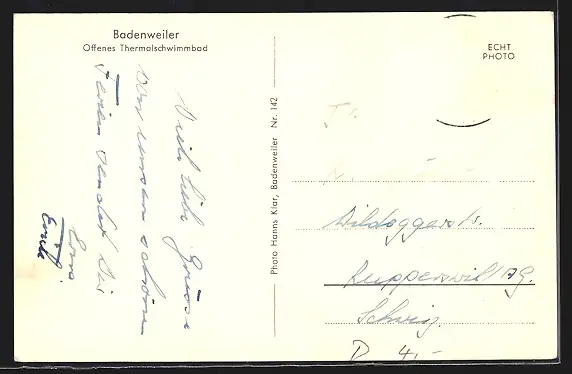 Badenweiler
Offenes Thermalschwimmbad
ECHT
PHOTO
Photo Hanns Klar, Badenweiler Nr. 142
Viele liebe Grüsse
von unsern schönen
Ferien sendet Dir
Erna
Ernst
Rupperswil / AG.
Schweiz.
D 4.-